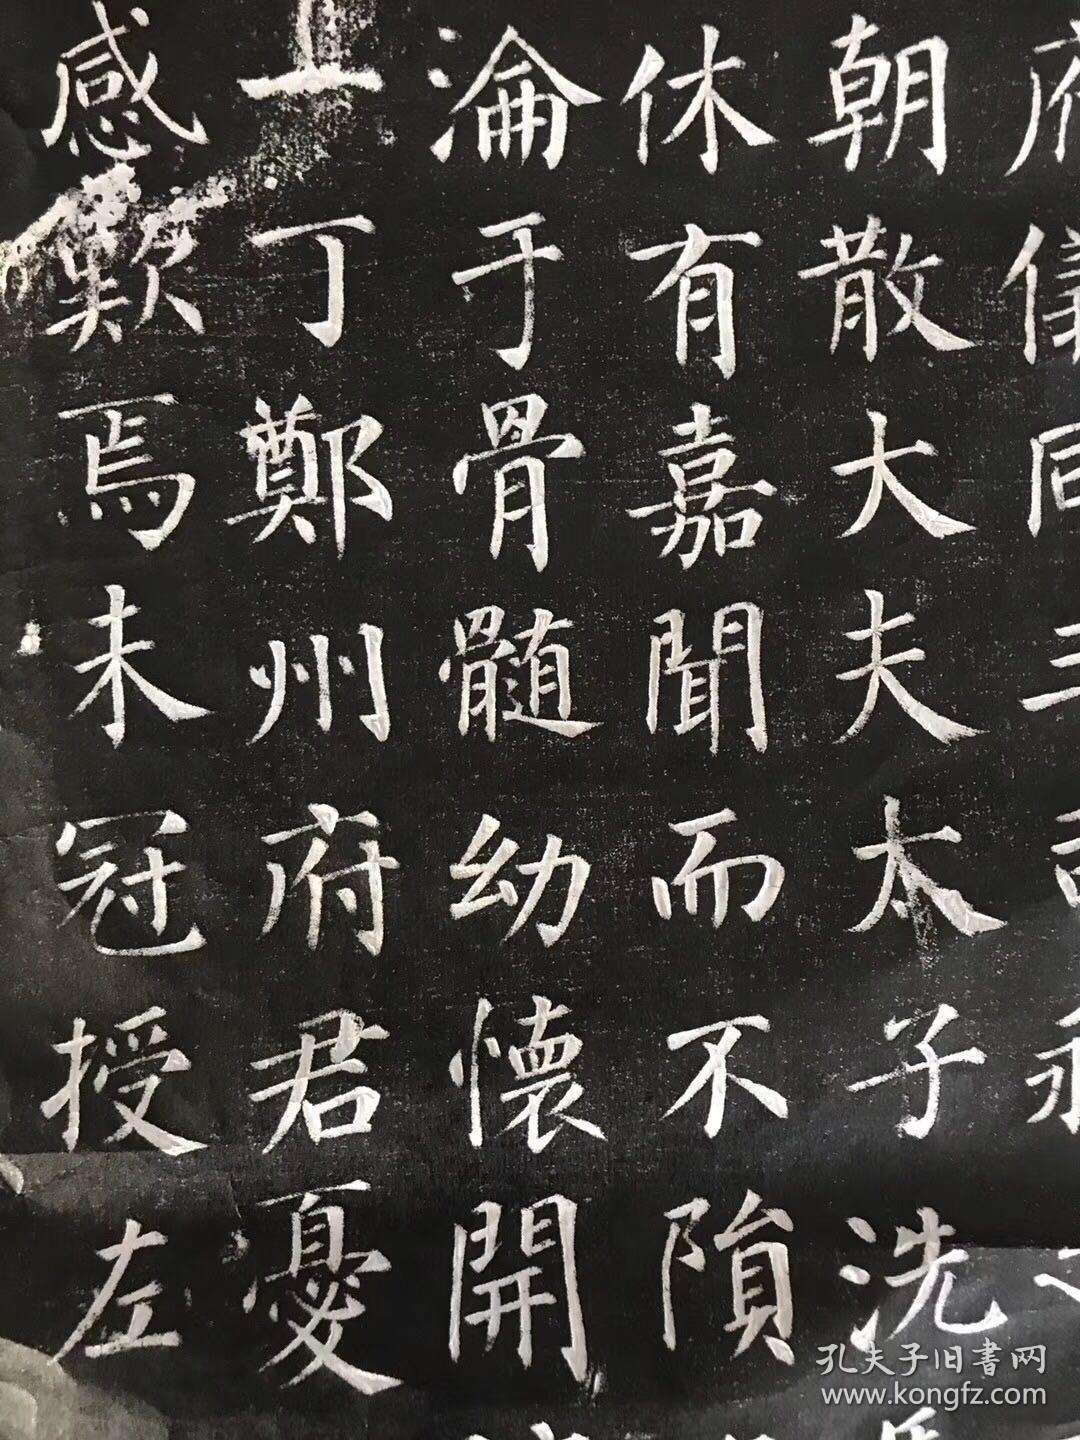 府儀同三司
朝散大夫太子洗
休有嘉聞而不隕
淪于骨髓幼懷開
上丁鄭州府君憂
感歎焉未冠授左
孔夫子旧書网
www.kongfz.com